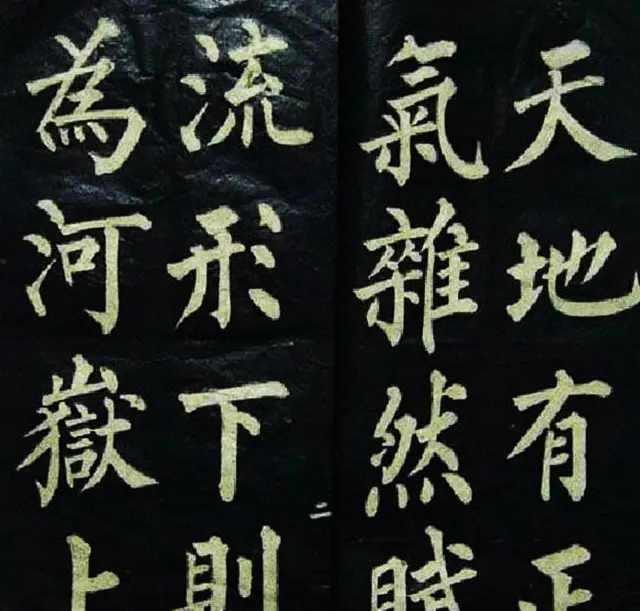 天地有正
氣雜然賦
流形下則
為河嶽上
二